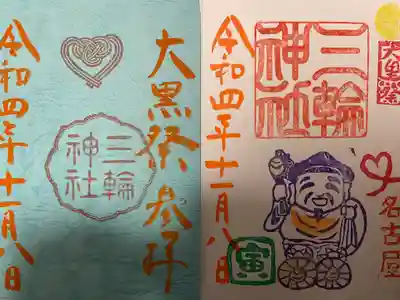 大黒祭参拝
三輪
神社
令和四年十一月八日
大黒祭
名古屋
三輪
神社
寅
令和四年十一月八日